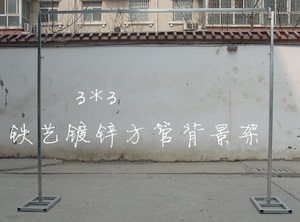 3*3
铁艺镀锌方管背景架